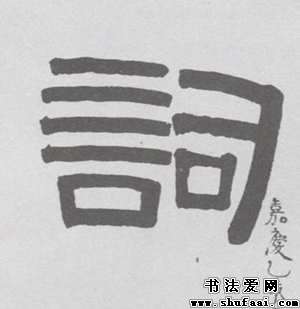 詞
嘉慶乙
书法爱网
www.shufaai.com